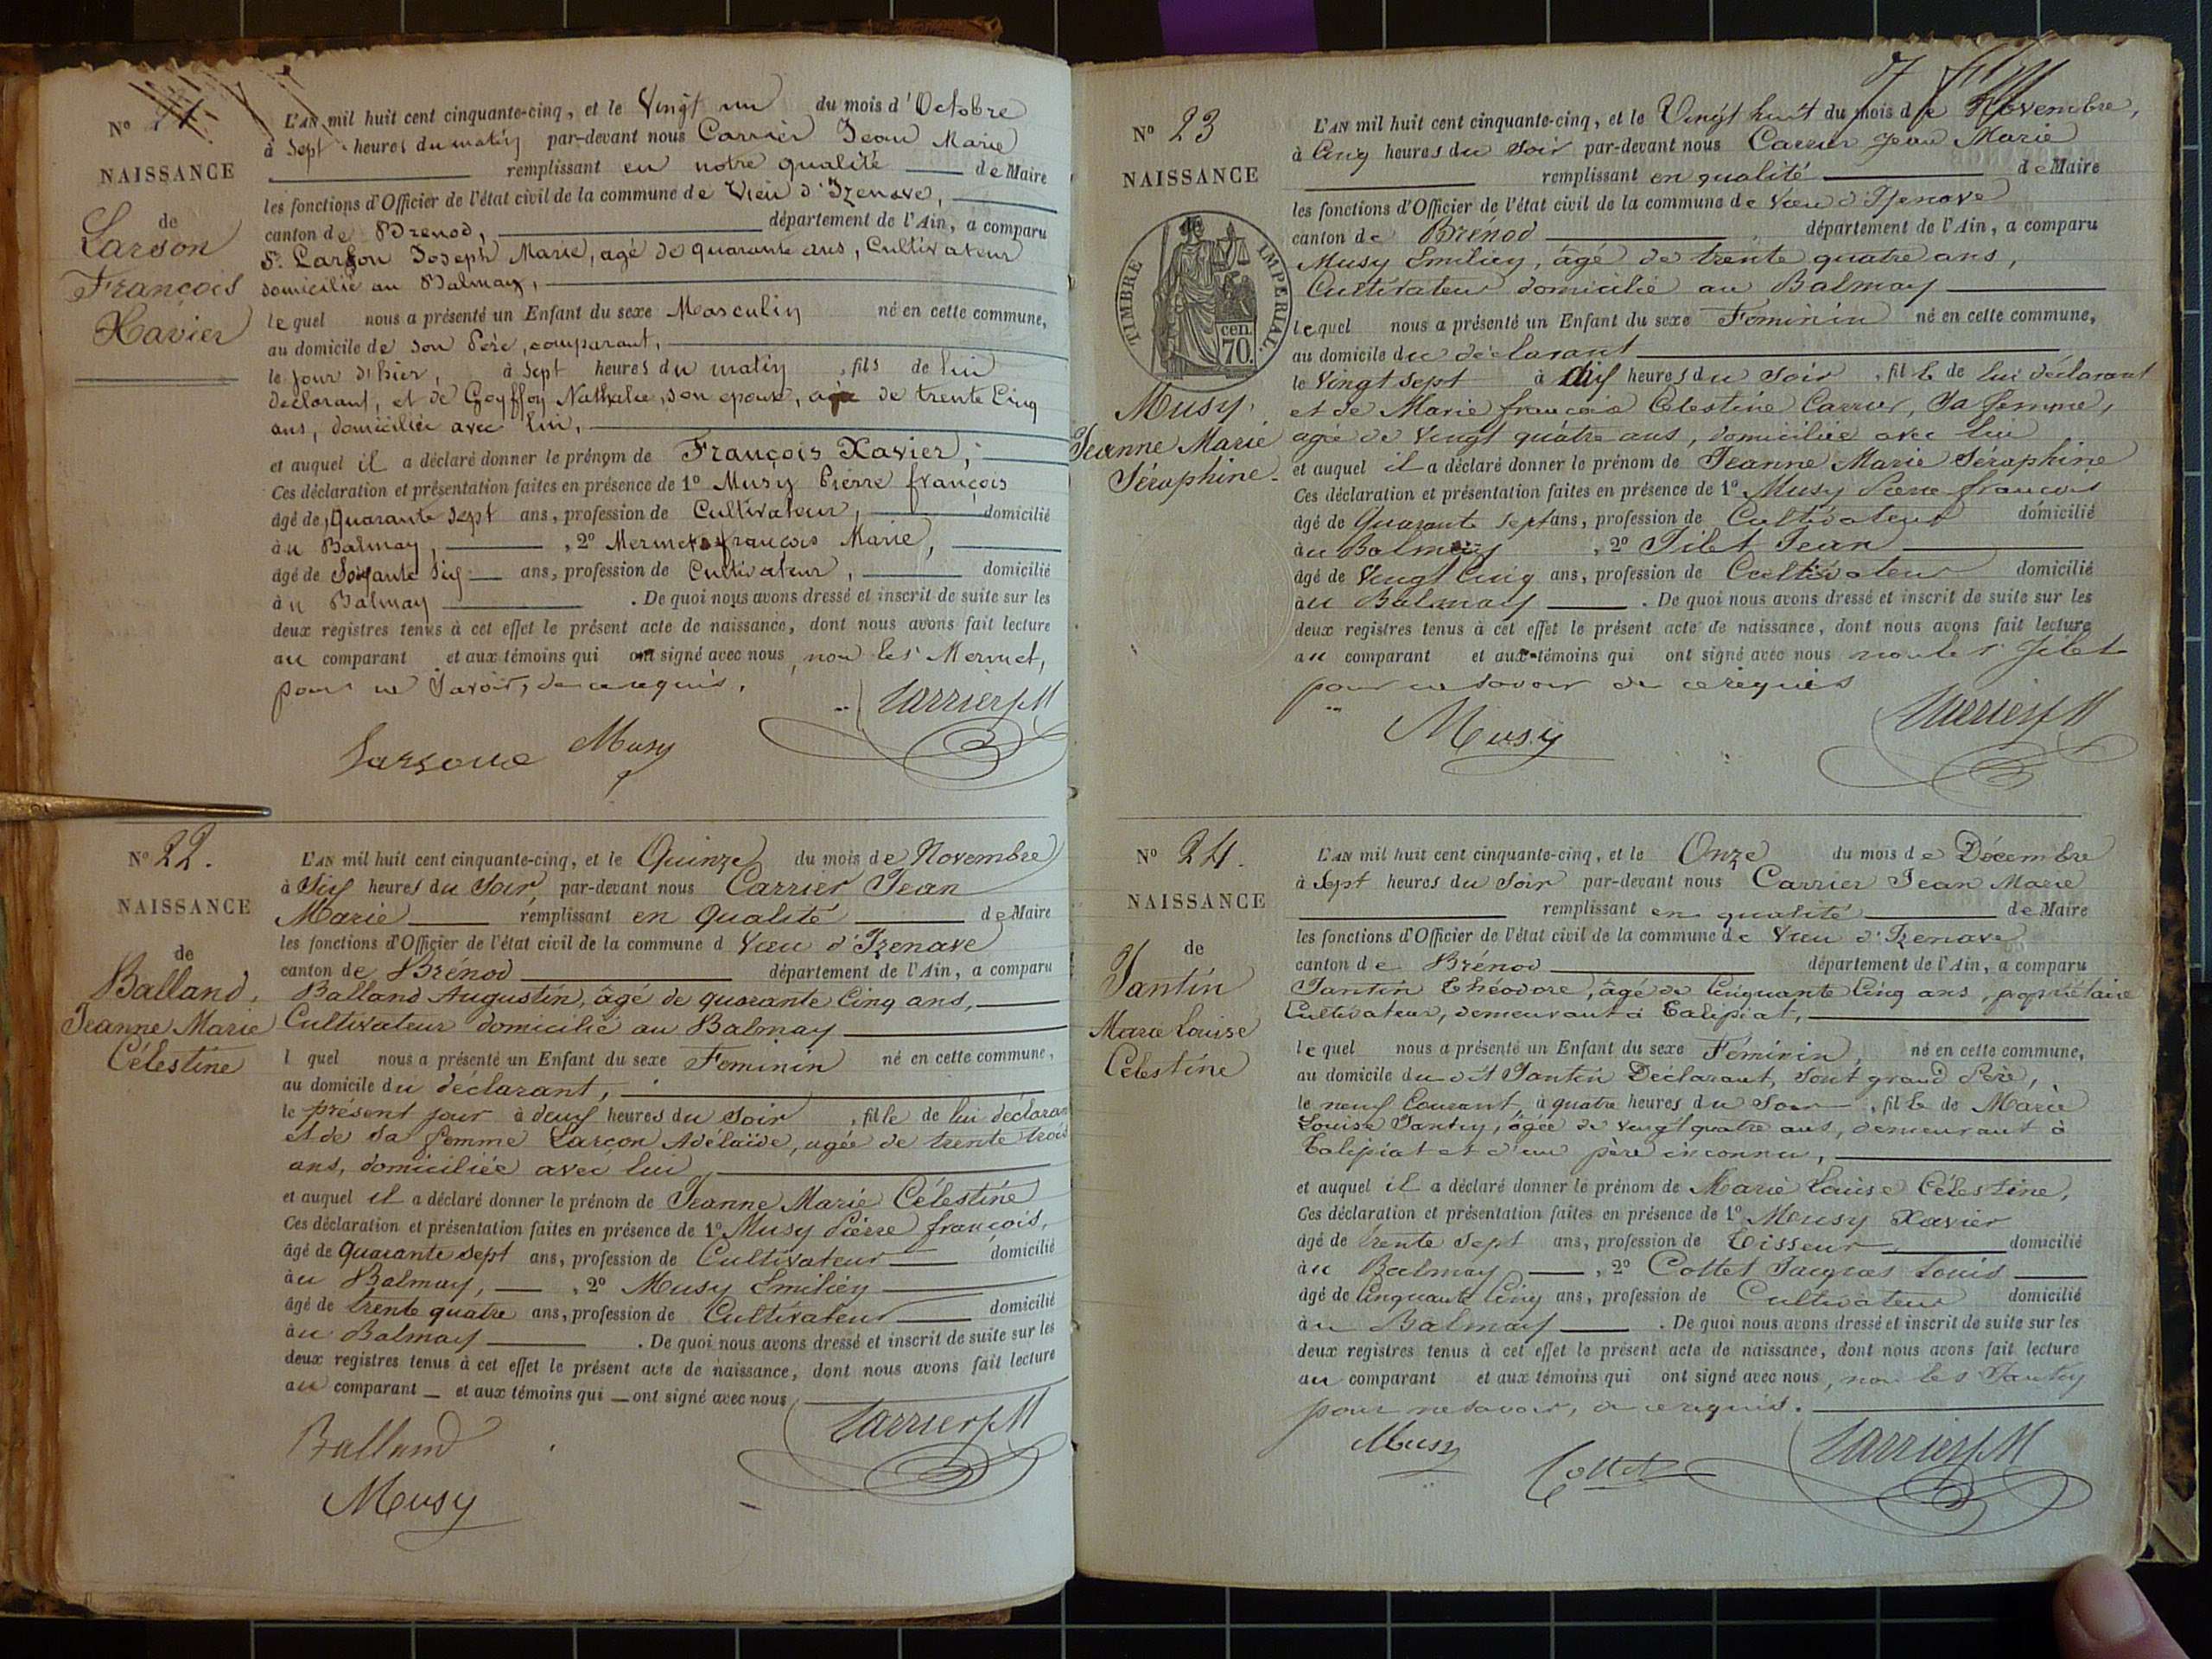 N°
NAISSANCE
de
Larson
François
Xavier
L'AN mil huit cent cinquante-cinq, et le Vingt un du mois d'Octobre
à Sept heures du matin par-devant nous Carrier Jean Marie
remplissant en notre qualité de Maire
les fonctions d'Officier de l'état civil de la commune de Vieu d'Izenave,
canton de Brenod, département de l'Ain, a comparu
Sr. Larson Joseph Marie, agé de quarante ans, Cultivateur
domicilié au Balmay,
lequel nous a présenté un Enfant du sexe Masculin né en cette commune,
au domicile de son Père, comparant,
le jour d'hier, à Sept heures du matin, fils de lui
déclarant, et de Goyffon Nathalie, son epouse, agée de trente Cinq
ans, domiciliée avec lui,
et auquel il a déclaré donner le prénom de François Xavier,
Ces déclaration et présentation faites en présence de 1° Musy Pierre françois
âgé de Quarante Sept ans, profession de Cultivateur, domicilié
àu Balmay, 2° Mermet françois Marie,
âgé de Soixante Six ans, profession de Cultivateur, domicilié
àu Balmay. De quoi nous avons dressé et inscrit de suite sur les
deux registres tenus à cet effet le présent acte de naissance, dont nous avons fait lecture
au comparant et aux témoins qui ont signé avec nous, non les Mermet,
pour ne Savoir, de ce requis.
CarrierJM
Larsone Musy
N° 22.
NAISSANCE
de
Balland,
Jeanne Marie
Célestine
L'AN mil huit cent cinquante-cinq, et le Quinze du mois de Novembre
à Six heures du Soir, par-devant nous Carrier Jean
Marie remplissant en Qualité de Maire
les fonctions d'Officier de l'état civil de la commune d Vieu d'Izenave
canton de Brénod département de l'Ain, a comparu
Balland Augustin, âgé de quarante Cinq ans,
Cultivateur domicilié au Balmay
l quel nous a présenté un Enfant du sexe Feminin né en cette commune,
au domicile du declarant,
le présent jour à deux heures du Soir, fille de lui déclarant
et de sa femme Larçon Adélaïde, agée de trente trois
ans, domiciliée avec lui,
et auquel il a déclaré donner le prénom de Jeanne Marie Célestine
Ces déclaration et présentation faites en présence de 1° Musy Pierre françois,
âgé de quarante sept ans, profession de Cultivateur domicilié
àu Balmay, 2° Musy Emilien
âgé de trente quatre ans, profession de Cultivateur domicilié
àu Balmay. De quoi nous avons dressé et inscrit de suite sur les
deux registres tenus à cet effet le présent acte de naissance, dont nous avons fait lecture
au comparant et aux témoins qui ont signé avec nous
CarrierJM
Balland
Musy
N° 23
NAISSANCE
TIMBRE IMPERIAL
70 cen.
Musy,
Jeanne Marie
Séraphine
L'AN mil huit cent cinquante-cinq, et le Vingt huit du mois de Novembre,
à Cinq heures du Soir par-devant nous Carrier Jean Marie
remplissant en qualité de Maire
les fonctions d'Officier de l'état civil de la commune de Vieu d'Izenave
canton de Brénod département de l'Ain, a comparu
Musy Emilien, âgé de trente quatre ans,
Cultivateur domicilié au Balmay
lequel nous a présenté un Enfant du sexe Feminin né en cette commune,
au domicile du déclarant
le Vingt sept à dix heures du Soir, fille de lui déclarant
et de Marie françoise Celestine Carrier, Sa femme,
agée de Vingt quatre ans, domiciliée avec lui
et auquel il a déclaré donner le prénom de Jeanne Marie Séraphine
Ces déclaration et présentation faites en présence de 1° Musy Pierre françois
âgé de Quarante sept ans, profession de Cultivateur domicilié
àu Balmay, 2° Jilet Jean
âgé de Vingt Cinq ans, profession de Cultivateur domicilié
àu Balmay. De quoi nous avons dressé et inscrit de suite sur les
deux registres tenus à cet effet le présent acte de naissance, dont nous avons fait lecture
au comparant et aux témoins qui ont signé avec nous non le Sr Jilet
pour ne savoir de ce requis
Musy CarrierJM
N° 24.
NAISSANCE
de
Tantin
Marie Louise
Célestine
L'AN mil huit cent cinquante-cinq, et le Onze du mois de Décembre
à Sept heures du Soir par-devant nous Carrier Jean Marie
remplissant en qualité de Maire
les fonctions d'Officier de l'état civil de la commune de Vieu d'Izenave
canton de Brénod département de l'Ain, a comparu
Tantin Théodore, âgé de Cinquante Cinq ans, propriétaire
Cultivateur, demeurant à Talipiat,
lequel nous a présenté un Enfant du sexe Féminin, né en cette commune,
au domicile du dit Tantin Déclarant, Sont grand Père,
le neuf Courant, à quatre heures du Soir, fille de Marie
Louise Tantin, agée de vingt quatre ans, demeurant à
Talipiat et d'un père inconnu,
et auquel il a déclaré donner le prénom de Marie Louise Célestine,
Ces déclaration et présentation faites en présence de 1° Musy Xavier
âgé de trente Sept ans, profession de Tisseur domicilié
àu Balmay, 2° Cottet Jacques Louis
âgé de Cinquante Cinq ans, profession de Cultivateur domicilié
àu Balmay. De quoi nous avons dressé et inscrit de suite sur les
deux registres tenus à cet effet le présent acte de naissance, dont nous avons fait lecture
au comparant et aux témoins qui ont signé avec nous, non les Tantin
pour ne savoir, de ce requis.
Musy Cottet CarrierJM